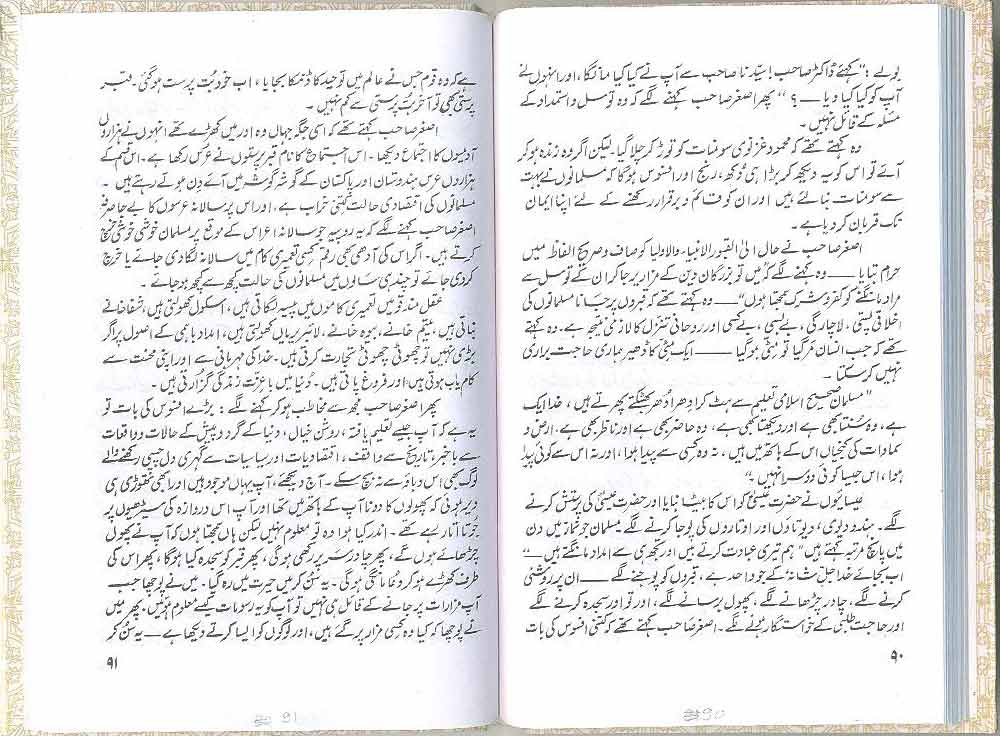 بولے : "کہئے ڈاکٹر صاحب! سیّدنا صاحب سے آپ نے کیا کیا مانگا، اور انہوں نے
آپ کو کیا کیا دیا ـــــ ؟ " پھر اصغر صاحب کہنے لگے کہ وہ توسل و استمداد کے
مسئلہ کے قائل نہیں ۔
وہ کہتے تھے کہ محمود غزنوی سومنات کو توڑ کر چلا گیا۔ لیکن اگر وہ زندہ ہو کر
آئے تو اس کو یہ دیکھ کر بڑا ہی دُکھ، رنج اور افسوس ہوگا کہ مسلمانوں نے بہت
سے سومنات بنائے ہیں اور ان کو قائم و برقرار رکھنے کے لئے اپنا ایمان
تک قربان کر دیا ہے ۔
اصغر صاحب نے حال الیٰ القبور الانبیاء والاولیا کو صاف و صریح الفاظ میں
حرام بتایا ـــــ وہ کہنے لگے کہ میں تو بزرگان دین کے مزار پر جا کر ان کے توسل سے
مراد مانگنے کو کفر و شرک سمجھتا ہوں" ـــــ وہ کہتے تھے کہ قبروں پر جانا مسلمانوں کی
اخلاقی پستی، لاچارگی، بے بسی، بے کسی اور روحانی تنزل کا لازمی نتیجہ ہے۔ وہ کہتے
تھے کہ جب انسان مر گیا تو مٹی ہو گیا ـــــ ایک مٹی کا ڈھیر ہماری حاجت براری
نہیں کر سکتا ۔
"مسلمان صحیح اسلامی تعلیم سے ہٹ کر اِدھر اُدھر بھٹکتے پھرتے ہیں، خدا ایک
ہے، وہ سُنتا بھی ہے اور دیکھتا بھی ہے، وہ حاضر بھی ہے اور ناظر بھی ہے۔ ارض و
سماوات کی کنجیاں اس کے ہاتھ میں ہیں، نہ وہ کسی سے پیدا ہوا، اور نہ اس سے کوئی پیدا
ہوا، اس جیسا کوئی دوسرا نہیں ۔"
عیسائیوں نے حضرت عیسیٰؑ کو اس کا بیٹا بنایا اور حضرت عیسیٰؑ کی پرستش کرنے
لگے۔ ہندو دیوی، دیوتاؤں اور اوتاروں کی پوجا کرنے لگے مسلمان جو نماز میں دن
میں پانچ مرتبہ کہتے ہیں "ہم تیری عبادت کرتے ہیں اور تجھ ہی سے امداد مانگتے ہیں ـــــ"
اب بجائے خدا جلّ شانہٗ کے جو واحد ہے، قبروں کو پوجنے لگے ـــــ ان پر روشنی
کرنے لگے، چادر چڑھانے لگے، پھول برسانے لگے، اور تو اور سجدہ کرنے لگے
اور حاجت طلبی کے خواستگار بننے لگے۔ اصغر صاحب کہتے تھے کہ کتنی افسوس کی بات
۹۰
90
ہے کہ وہ قوم جس نے عالم میں توحید کا ڈنکا بجایا، اب خود بُت پرست ہو گئی۔ قبر
پرستی بھی تو آخر بُت پرستی سے کم نہیں ۔
اصغر صاحب کہتے تھے کہ اسی جگہ جہاں وہ اور میں کھڑے تھے انہوں نے ہزاروں
آدمیوں کا اجتماع دیکھا۔ اس اجتماع کا نام قبر پرستوں نے عرس رکھا ہے۔ اس قسم کے
ہزاروں عرس ہندوستان اور پاکستان کے گوشہ گوشہ میں آئے دن ہوتے رہتے ہیں ۔
مسلمانوں کی اقتصادی حالت کتنی خراب ہے، اور اس پر سالانہ عرسوں کا بے جا صرفہ
اصغر صاحب کہنے لگے کہ یہ روپیہ جو سالانہ اعراس کے موقع پر مسلمان خوشی خوشی خرچ
کرتے ہیں۔ اگر اس کی آدھی بھی رقم کسی تعمیری کام میں سالانہ لگا دی جائے یا خرچ
کر دی جائے تو چند ہی سالوں میں مسلمانوں کی حالت کچھ سے کچھ ہو جائے ۔
عقل مند قومیں تعمیری کاموں میں پیسہ لگاتی ہیں، اسکول کھولتی ہیں، شفاخانے
بناتی ہیں، یتیم خانے، بیوہ خانے، لائبریریاں کھولتی ہیں، امداد باہمی کے اصول پر اگر
بڑی نہیں تو چھوٹی چھوٹی تجارت کرتی ہیں۔ خدا کی مہربانی سے اور اپنی محنت سے
کام یاب ہوتی ہیں اور فروغ پاتی ہیں۔ دُنیا میں باعزّت زندگی گزارتی ہیں ۔
پھر اصغر صاحب مجھ سے مخاطب ہو کر کہنے لگے : بڑے افسوس کی بات تو
یہ ہے کہ آپ جیسے تعلیم یافتہ، روشن خیال، دنیا کے گرد و پیش کے حالات و واقعات
سے باخبر، تاریخ سے واقف، اقتصادیات اور سیاسیات سے گہری دل چسپی رکھنے والے
لوگ بھی اس وبا سے نہ بچ سکے۔ آج دیکھئے، آپ یہاں موجود ہیں اور ابھی تھوڑی ہی
دیر ہوئی کہ پھولوں کا دونا آپ کے ہاتھ میں تھا اور آپ اس دروازہ کی سیڑھیوں پر
جوتا اتار رہے تھے۔ اندر کیا ہوا وہ تو معلوم نہیں لیکن ہاں سمجھتا ہوں کہ آپ نے پھول
چڑھائے ہوں گے، پھر چادر سر پر رکھی ہوگی، پھر قبر کو سجدہ کیا ہوگا، پھر اس کی
طرف کھڑے ہو کر دعا مانگی ہوگی۔ یہ سُن کر میں حیرت میں رہ گیا۔ میں نے پوچھا جب
آپ مزارات پر جانے کے قائل ہی نہیں تو آپ کو یہ رسومات کیسے معلوم ہوئیں۔ پھر میں
نے پوچھا کہ کیا وہ کسی مزار پر گئے ہیں، اور لوگوں کو ایسا کرتے دیکھا ہے ـــــ یہ سُن کر
۹۱
91